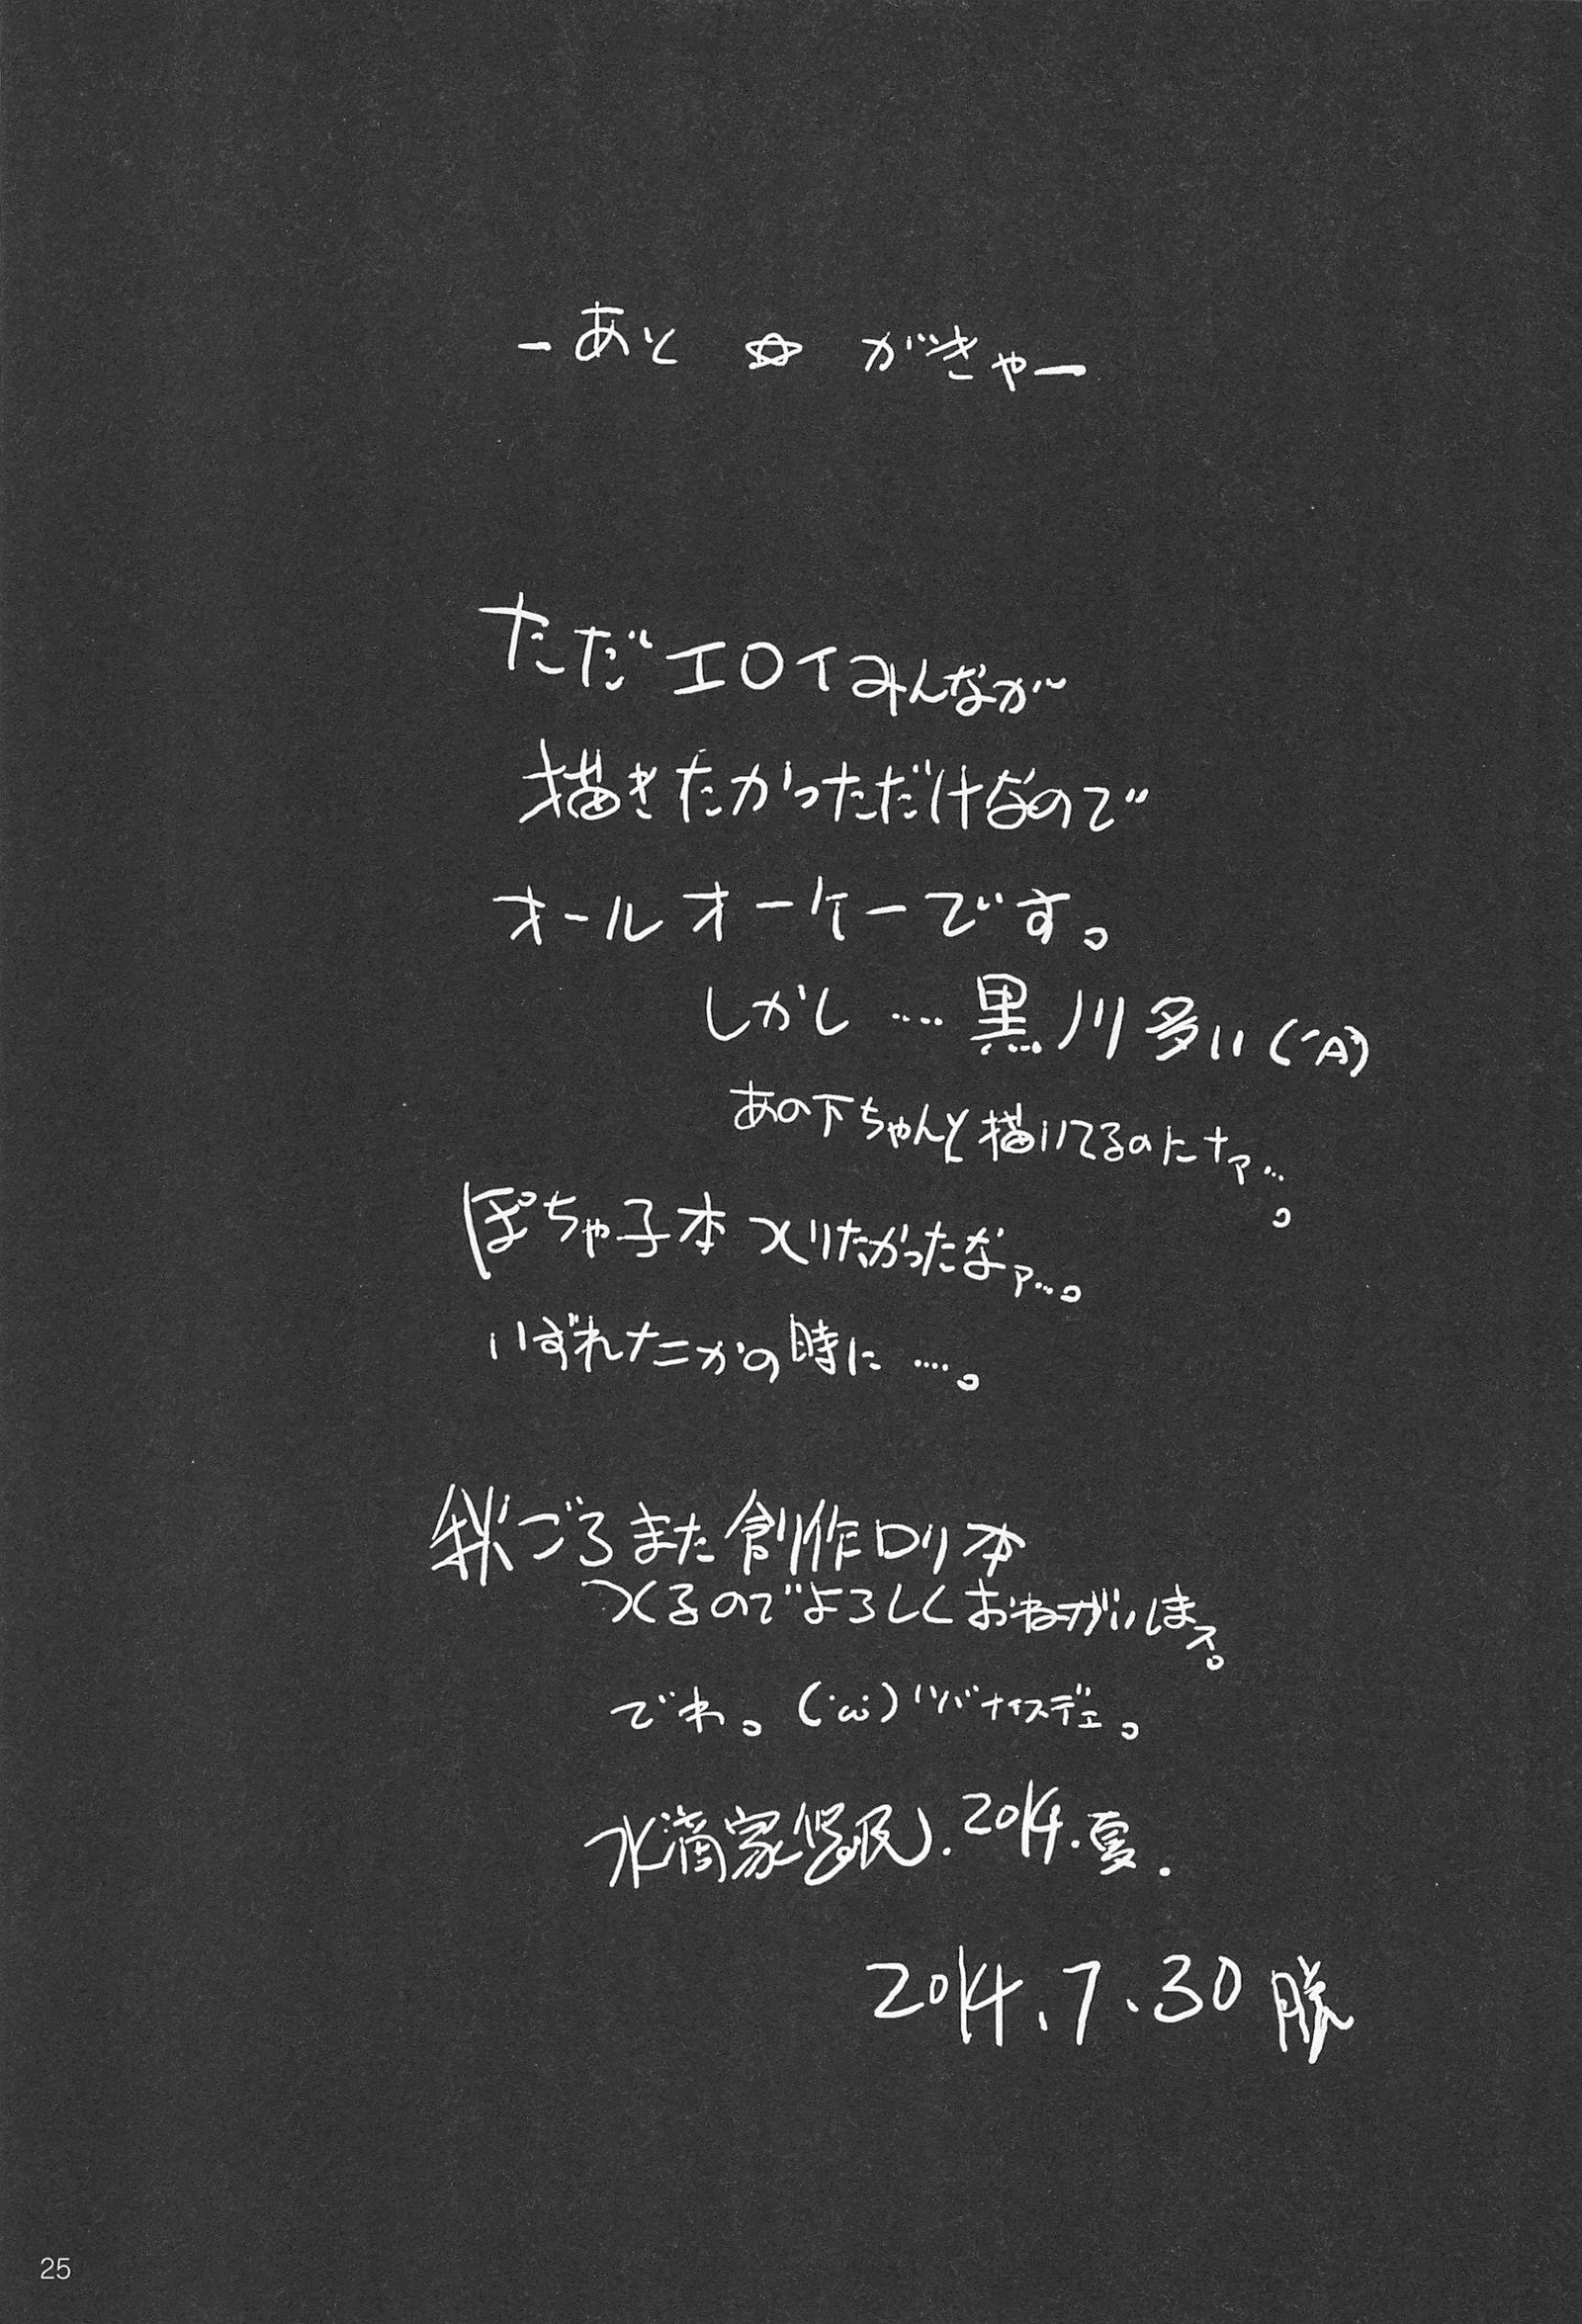 ーあと ☆ がきゃー
ただエロイみんなが
描きたかっただけなので
オールオーケーです。
しかし‥‥黒ノリ多い(´A`)
あの下ちゃんと描いてるのにナァ…。
ぽちゃ子本つくりたかったなァ…。
いずれナニかの時に‥‥。
秋ごろまた創作ロリ本
つくるのでよろしくおねがいしまス。
でわ。(・ω・)ノシ
2014.夏.
2014.7.30
25